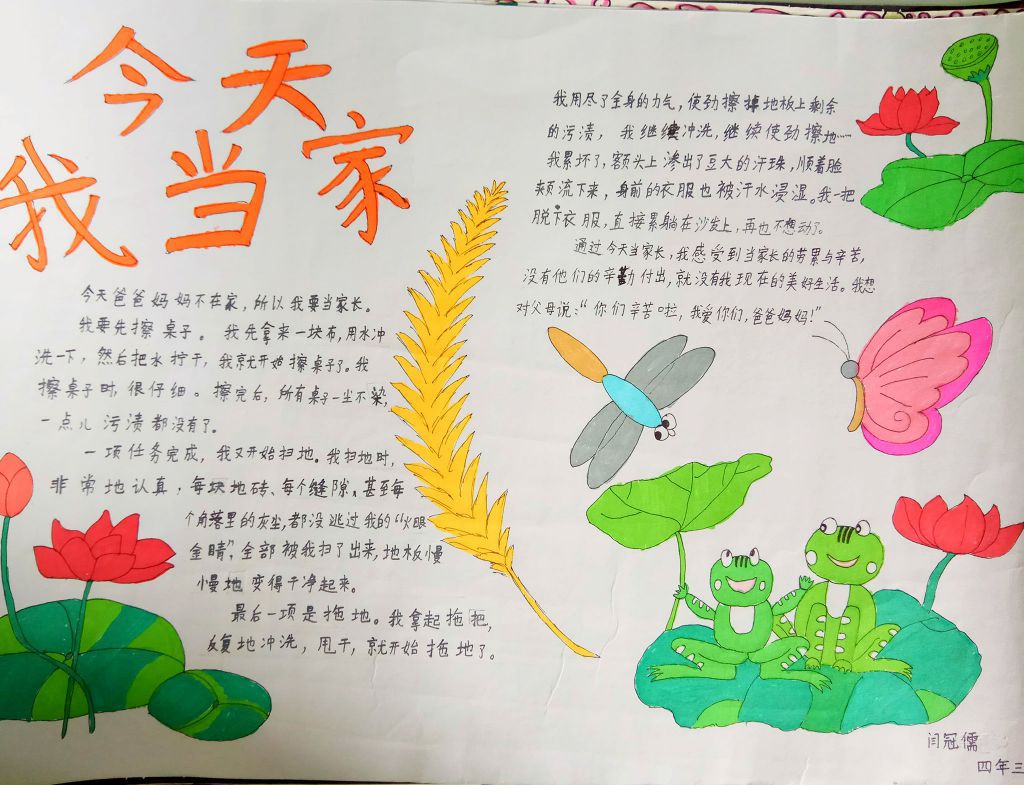 今天
我当家
今天爸爸妈妈不在家，所以我要当家长。
我要先擦桌子。我先拿来一块布，用水冲
洗一下，然后把水拧干，我就开始擦桌子了。我
擦桌子时，很仔细。擦完后，所有桌子一尘不染，
一点儿污渍都没有了。
一项任务完成，我又开始扫地。我扫地时，
非常地认真，每块地砖、每个缝隙、甚至每
个角落里的灰尘，都没逃过我的“火眼
金睛”，全部被我扫了出来，地板慢
慢地变得干净起来。
最后一项是拖地。我拿起拖把，
反复地冲洗，甩干，就开始拖地了。
我用尽了全身的力气，使劲擦掉地板上剩余
的污渍，我继续冲洗，继续使劲擦地……
我累坏了，额头上渗出了豆大的汗珠，顺着脸
颊流下来，身前的衣服也被汗水浸湿。我一把
脱下衣服，直接累躺在沙发上，再也不想动了。
通过今天当家长，我感受到当家长的劳累与辛苦，
没有他们的辛勤付出，就没有我现在的美好生活。我想
对父母说：“你们辛苦啦，我爱你们，爸爸妈妈！”
闫冠儒
四年三